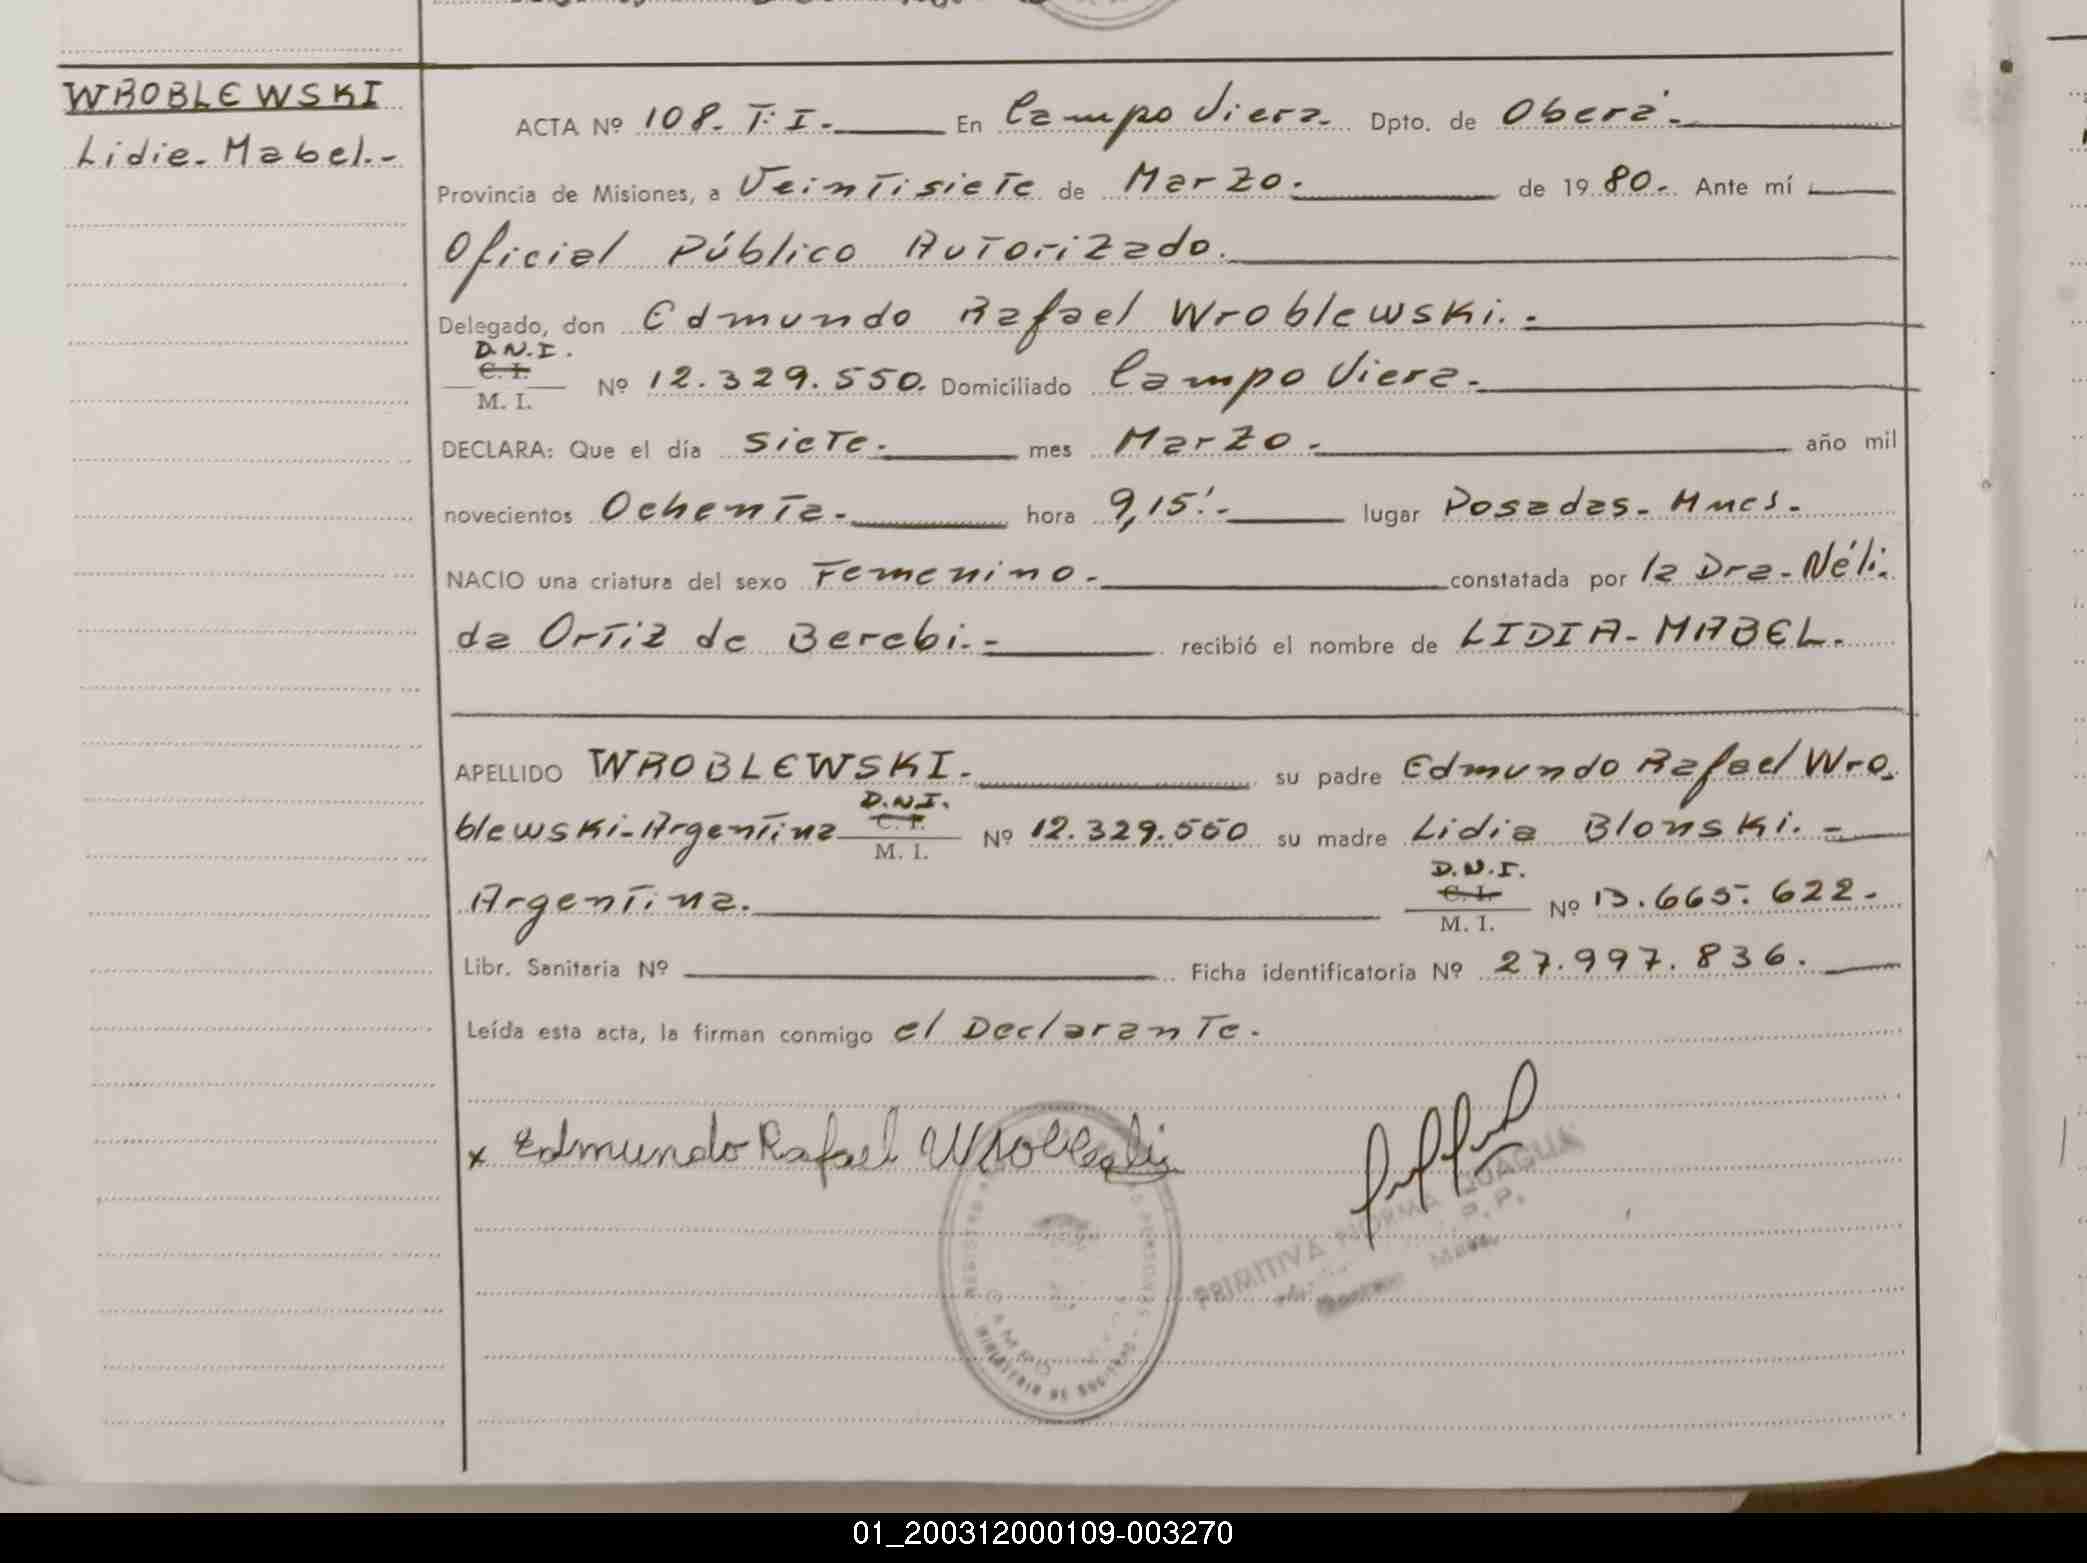 WROBLEWSKI
Lidia-Mabel.-
ACTA Nº 108. T: I.- En Campo Viera. Dpto. de Oberá.-
Provincia de Misiones, a Veintisiete de Marzo.- de 1980.- Ante mí
Oficial Público Autorizado.
Delegado, don Edmundo Rafael Wroblewski.-
D.N.I.
C. I.
M. I.
Nº 12.329.550. Domiciliado Campo Viera.-
DECLARA: Que el día Siete.- mes Marzo.- año mil
novecientos Ochenta.- hora 9,15'.- lugar Posadas- Mnes.-
NACIO una criatura del sexo Femenino.- constatada por la Dra. Néli-
da Ortiz de Berebi.- recibió el nombre de LIDIA-MABEL.-
APELLIDO WROBLEWSKI.- su padre Edmundo Rafael Wro-
blewski-Argentina D.N.I. C. I. M. I. Nº 12.329.550 su madre Lidia Blonski.-
Argentina. D.N.I. C. I. M. I. Nº 13.665.622.-
Libr. Sanitaria Nº Ficha identificatoria Nº 27.997.836.
Leída esta acta, la firman conmigo el Declarante.-
x Edmundo Rafael Wroblewski
PRIMITIVA NORMA
01_200312000109-003270